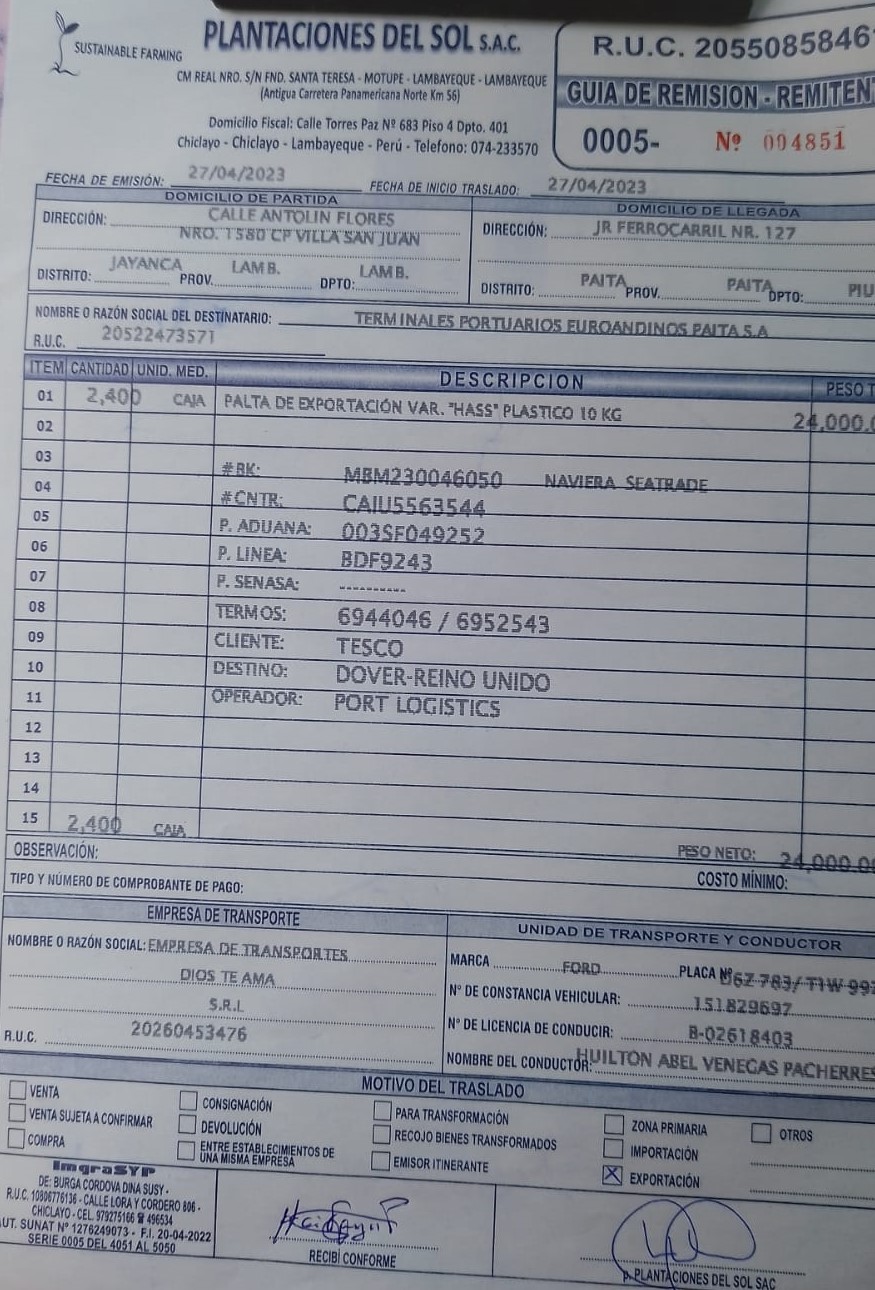 SUSTAINABLE FARMING
PLANTACIONES DEL SOL S.A.C.
CM REAL NRO. S/N FND. SANTA TERESA - MOTUPE - LAMBAYEQUE - LAMBAYEQUE
(Antigua Carretera Panamericana Norte Km 56)
Domicilio Fiscal: Calle Torres Paz Nº 683 Piso 4 Dpto. 401
Chiclayo - Chiclayo - Lambayeque - Perú - Telefono: 074-233570
R.U.C. 2055085846
GUIA DE REMISION - REMITEN
0005- Nº 004851
FECHA DE EMISIÓN: 27/04/2023 FECHA DE INICIO TRASLADO: 27/04/2023
DOMICILIO DE PARTIDA
DIRECCIÓN: CALLE ANTOLIN FLORES
NRO. 1580 CP VILLA SAN JUAN
DISTRITO: JAYANCA PROV. LAMB. DPTO: LAMB.
DOMICILIO DE LLEGADA
DIRECCIÓN: JR FERROCARRIL NR. 127
DISTRITO: PAITA PROV. PAITA DPTO: PIU
NOMBRE O RAZÓN SOCIAL DEL DESTINATARIO: TERMINALES PORTUARIOS EUROANDINOS PAITA S.A
R.U.C. 20522473571
ITEM CANTIDAD UNID. MED. DESCRIPCION PESO T
01 2,400 CAJA PALTA DE EXPORTACIÓN VAR. "HASS" PLASTICO 10 KG 24,000.0
02
03
04 #BK: MBM230046050 NAVIERA SEATRADE
05 #CNTR: CAIU5563544
06 P. ADUANA: 003SF049252
07 P. LINEA: BDF9243
08 P. SENASA: ----------
09 TERMOS: 6944046 / 6952543
10 CLIENTE: TESCO
11 DESTINO: DOVER-REINO UNIDO
12 OPERADOR: PORT LOGISTICS
13
14
15 2,400 CAJA
PESO NETO: 24,000.00
OBSERVACIÓN:
COSTO MÍNIMO:
TIPO Y NÚMERO DE COMPROBANTE DE PAGO:
EMPRESA DE TRANSPORTE
NOMBRE O RAZÓN SOCIAL: EMPRESA DE TRANSPORTES
DIOS TE AMA
S.R.L
R.U.C. 20260453476
UNIDAD DE TRANSPORTE Y CONDUCTOR
MARCA FORD PLACA Nº D6Z 783/ T1W 997
N° DE CONSTANCIA VEHICULAR: 151829697
N° DE LICENCIA DE CONDUCIR: B-02618403
NOMBRE DEL CONDUCTOR: HUILTON ABEL VENEGAS PACHERRES
MOTIVO DEL TRASLADO
VENTA
VENTA SUJETA A CONFIRMAR
COMPRA
CONSIGNACIÓN
DEVOLUCIÓN
ENTRE ESTABLECIMIENTOS DE
UNA MISMA EMPRESA
PARA TRANSFORMACIÓN
RECOJO BIENES TRANSFORMADOS
EMISOR ITINERANTE
ZONA PRIMARIA
IMPORTACIÓN
X EXPORTACIÓN
OTROS
ImgraSYP
DE: BURGA CORDOVA DINA SUSY -
R.U.C. 10806776136 - CALLE LORA Y CORDERO 806 -
CHICLAYO - CEL. 979275166 ☎ 496534
AUT. SUNAT N° 1276249073 - F.I. 20-04-2022
SERIE 0005 DEL 4051 AL 5050
RECIBÍ CONFORME
p. PLANTACIONES DEL SOL SAC